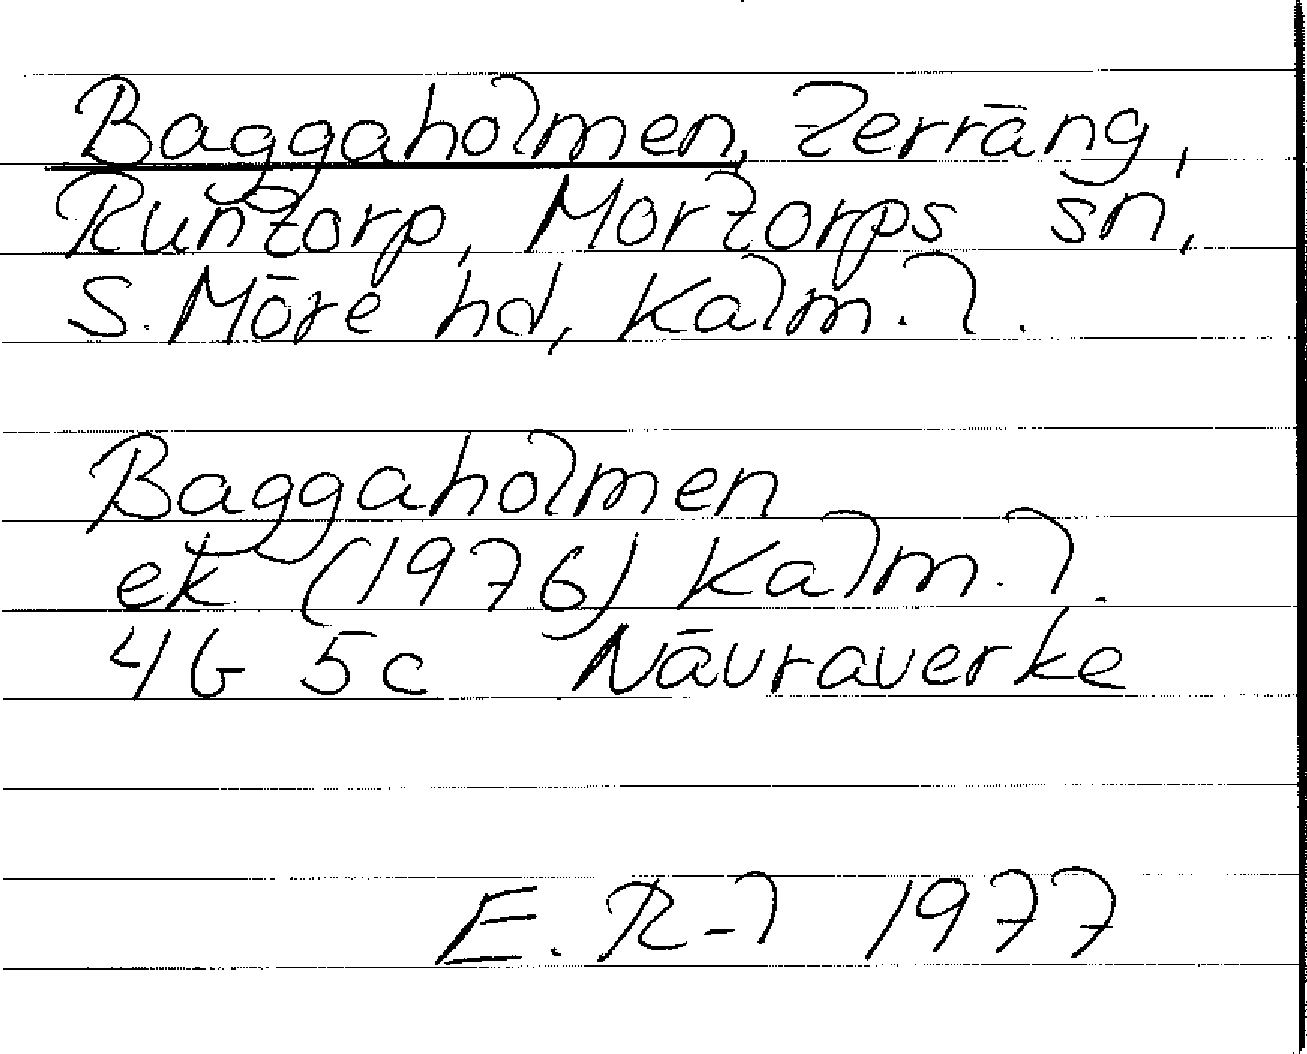 Baggaholmen, Terräng,
Runtorp, Mortorps sn,
S. Möre hd, Kalm. l.
Baggaholmen
ek (1976) Kalm. l.
4G 5c Nävraverke
E. R-l 1977